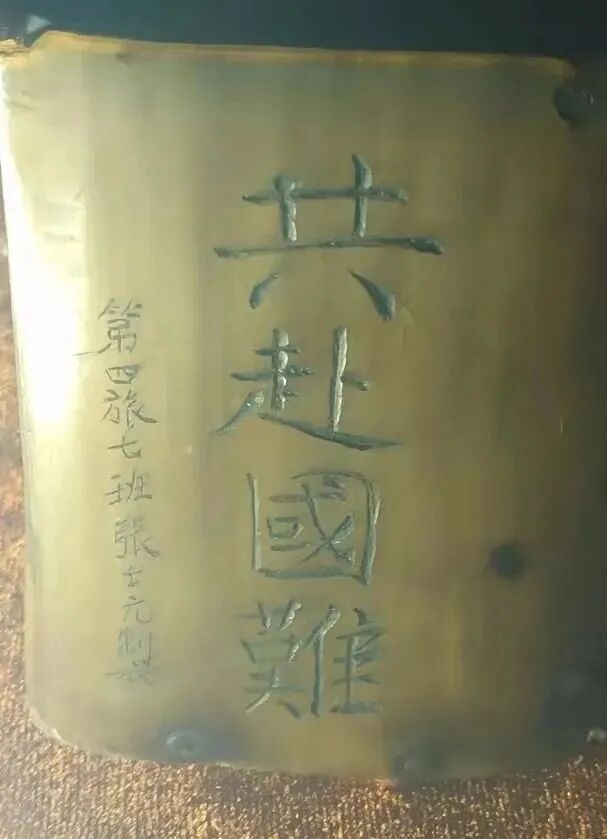 共赴國難
第四旅七班張士元製